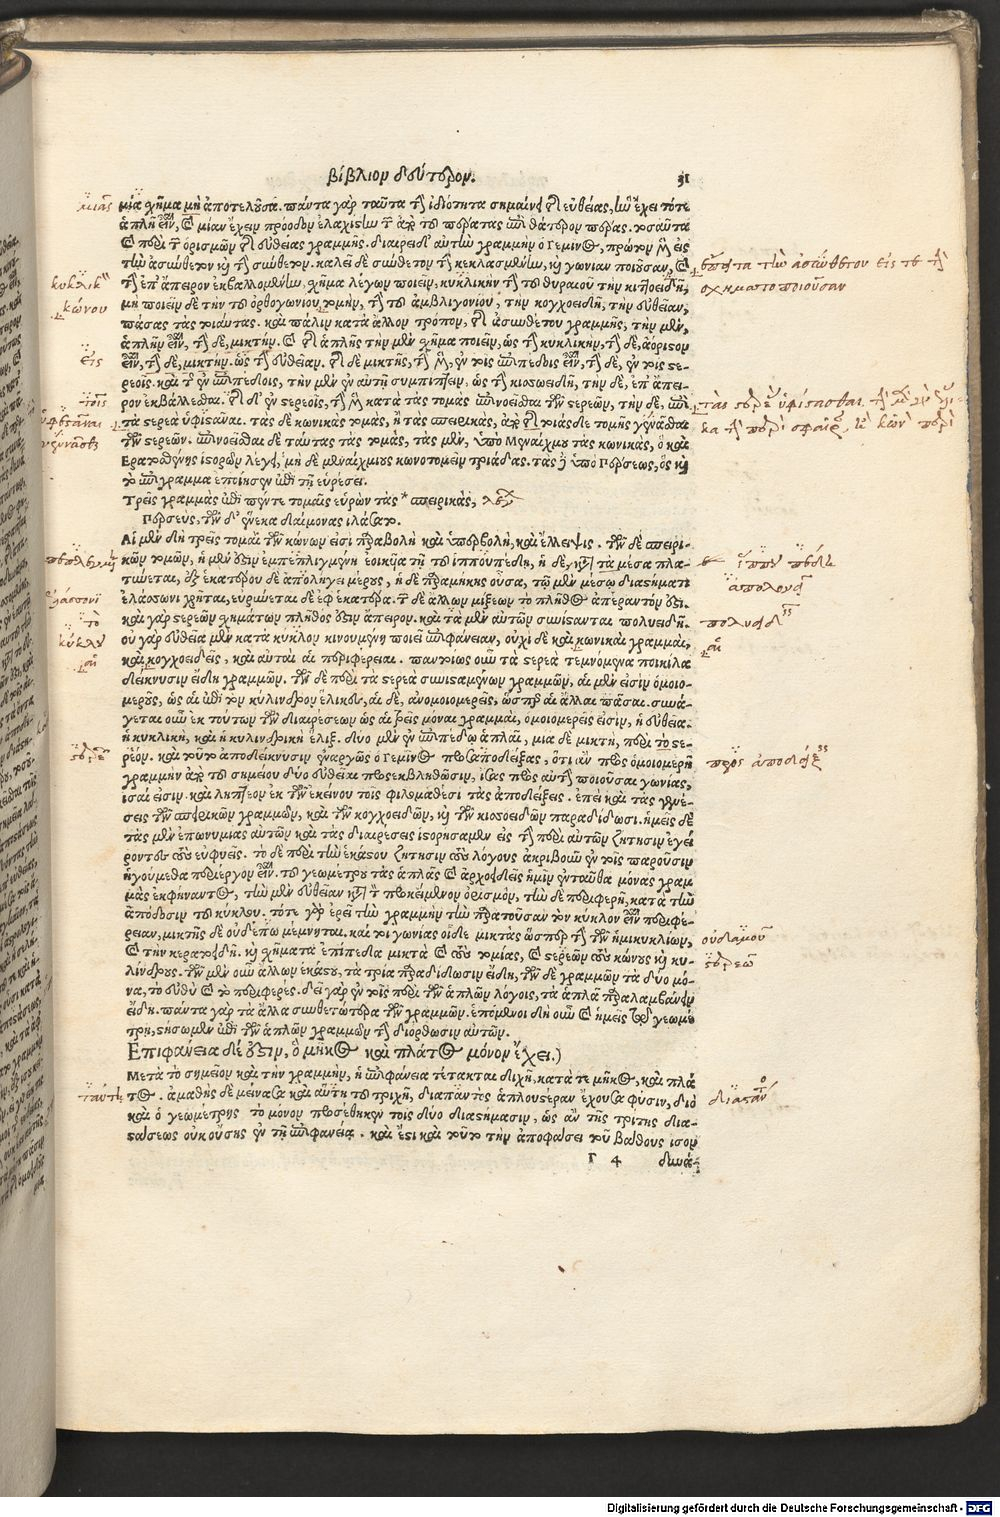 βίβλιον δεύτερον. 31
μία χῆμα μὴ ἀποτελοῦσα. πάντα γὰρ ταῦτα τὴν ἰδιότητα σημαίνει τῆς εὐθείας, ἣν ἔχει τότε
ἁπλῆ εἶναι, καὶ μίαν ἔχειν πρόοδον ἐλαχίστην τὴν ἀπὸ τοῦ πέρατος ἐπὶ θάτερον πέρας. τοσαῦτα
καὶ περὶ τὸν ὁρισμὸν τῆς εὐθείας γραμμῆς. διαιρεῖ δ' αὐτὴν γραμμὴν ὁ Γεμῖνος, πρῶτον μὲν εἰς
τὴν ἀσύνθετον καὶ τὴν σύνθετον. καλεῖ δὲ σύνθετον τὴν κεκλασμένην, καὶ γωνίαν ποιοῦσαν, καὶ
τὴν ἐπ' ἄπειρον ἐκβαλλομένην, χῆμα λέγων ποιεῖν, κυκλικὴν τὴν τοῦ θυραιοῦ τὴν κιττοειδῆ,
μὴ ποιεῖν δὲ τὴν τοῦ ὀρθογωνίου τομὴν, τὴν τοῦ ἀμβλιγονίου, τὴν κογχοειδῆ, τὴν εὐθεῖαν,
πάσας τὰς τοιαύτας. καὶ πάλιν κατὰ ἄλλον τρόπον, τῆς ἀσυνθέτου γραμμῆς, τὴν μὲν,
ἁπλῆν εἶναι, τὴν δὲ, μικτήν. καὶ τῆς ἁπλῆς τὴν μὲν χῆμα ποιεῖν, ὡς τὴν κυκλικὴν, τὴν δὲ, ἀόριστον
εἶναι, τὴν δὲ, μικτήν. ὡς τὴν εὐθεῖαν. τῆς δὲ μικτῆς, τὴν μὲν, ἐν τοῖς ἐπιπέδοις εἶναι, τὴν δὲ, ἐν τοῖς στε-
ρεοῖς. καὶ τῆς ἐν ἐπιπέδοις, τὴν μὲν ἐν αὐτῇ συμπίπτειν, ὡς τὴν κισσοειδῆ, τὴν δὲ, ἐπ' ἄπει-
ρον ἐκβάλλεσθαι. τῆς δ' ἐν στερεοῖς, τὴν μὲν κατὰ τὰς τομὰς ἐπινοεῖσθαι τῶν στερεῶν, τὴν δὲ, ἐπὶ
τὰ στερεὰ ὑφιστάναι. τὰς δὲ κωνικὰς τομὰς, ἢ τὰς σπειρικὰς, ἀπὸ τῆς τοιᾶσδε τομῆς γεννᾶσθαι
τῶν στερεῶν. ἐπινοεῖσθαι δὲ ταύτας τὰς τομὰς, τὰς μὲν, ὑπὸ Μεναίχμου τὰς κωνικὰς, ὃ καὶ
Ερατοσθένης ἱστορῶν λέγει, μὴ δὲ μεναίχμιους κωνοτομεῖν τριάδας. τὰς δὲ ὑπὸ Περσέως, ὃς καὶ
τὸ ἐπίγραμμα ἐποίησεν ἐπὶ τῇ εὑρέσει.
Τρεῖς γραμμὰς ἐπὶ πέντε τομαῖς εὑρὼν τὰς * σπειρικὰς,
Περσεὺς, τῶν δ' ἕνεκα δαίμονας ἱλάσατο.
Αἱ μὲν δὴ τρεῖς τομαὶ τῶν κώνων εἰσὶ παραβολὴ καὶ ὑπερβολὴ, καὶ ἔλλειψις. τῶν δὲ σπειρι-
κῶν τομῶν, ἡ μέν ἐστιν ἐμπεπλιγμένη ἐοικυῖα τῇ τοῦ ἱπποπέδῃ, ἡ δὲ, κατὰ τὰ μέσα πλα-
τύνεται, ἐξ ἑκατέρου δὲ ἀπολήγει μέρους, ἡ δὲ παραμήκης οὖσα, τῷ μὲν μέσῳ διαστήματι
ἐλάσσονι χρῆται, εὐρύνεται δὲ ἐφ' ἑκάτερα. τῶν δὲ ἄλλων μίξεων τὸ πλῆθος ἀπέραντόν ἐστι.
καὶ γὰρ στερεῶν χημάτων πλῆθός ἐστιν ἄπειρον. καὶ τὰ μὲν αὐτῶν συνίσταται πολυειδῆ.
οὐ γὰρ εὐθεῖα μὲν κατὰ κύκλον κινουμένη ποιεῖ ἐπιφάνειαν, οὐχὶ δὲ καὶ κωνικαὶ γραμμαὶ,
καὶ κογχοειδεῖς, καὶ αὐταὶ αἱ περιφέρειαι. παντοίως οὖν τὰ στερεὰ τεμνόμενα ποικίλα
δείκνυσιν εἴδη γραμμῶν. τῶν δὲ περὶ τὰ στερεὰ συνισταμένων γραμμῶν, αἱ μέν εἰσιν ὁμοιο-
μερεῖς, ὡς αἱ ἐπὶ τὸν κύλινδρον ἕλικες, αἱ δὲ, ἀνομοιομερεῖς, ὥσπερ αἱ ἄλλαι πᾶσαι. συνά-
γεται οὖν ἐκ τούτων τῶν διαιρέσεων ὡς αἱ τρεῖς μόναι γραμμαὶ, ὁμοιομερεῖς εἰσιν, ἡ εὐθεῖα.
ἡ κυκλικὴ, καὶ ἡ κυλινδρικὴ ἕλιξ. δύο μὲν ἐν ἐπιπέδῳ ἁπλαῖ, μία δὲ μικτὴ, περὶ τὸ στε-
ρεόν. καὶ τοῦτο ἀποδείκνυσιν ἐναργῶς ὁ Γεμῖνος προσαποδείξας, ὅτι ἂν πρὸς ὁμοιομερῆ
γραμμὴν ἀπὸ τοῦ σημείου δύο εὐθεῖαι προσεκβληθῶσιν, ἴσας πρὸς αὐτὴν ποιοῦσαι γωνίας,
ἴσαι εἰσίν. καὶ ληπτέον ἐκ τῶν ἐκείνου τοῖς φιλομαθέσι τὰς ἀποδείξεις. ἐπεὶ καὶ τὰς γενέ-
σεις τῶν σπειρικῶν γραμμῶν, καὶ τῶν κογχοειδῶν, καὶ τῶν κισσοειδῶν παραδίδωσι. ἡμεῖς δὲ
τὰς μὲν ἐπωνυμίας αὐτῶν καὶ τὰς διαιρέσεις ἱστορήσαμεν εἰς τὴν περὶ αὐτῶν ζήτησιν ἐγεί
ροντες τοὺς εὐφυεῖς. τὸ δὲ περὶ τὴν ἑκάστου ζήτησιν τοὺς λόγους ἀκριβοῦν ἐν τοῖς παροῦσιν
ἡγούμεθα περίεργον εἶναι. τοῦ γεωμέτρου τὰς ἁπλᾶς καὶ ἀρχοειδεῖς ἡμῖν ἐνταῦθα μόνας γραμ
μὰς ἐκφήναντος, τὴν μὲν εὐθεῖαν κατὰ τὸν προκείμενον ὁρισμὸν, τὴν δὲ περιφερῆ, κατὰ τὴν
ἀπόδοσιν τοῦ κύκλου. τότε γὰρ ἐρεῖ τὴν γραμμὴν τὴν περατοῦσαν τὸν κύκλον εἶναι περιφέ-
ρειαν, μικτῆς δὲ οὐδέπω μέμνηται. καί τοι γωνίας οἶδε μικτὰς ὥσπερ τὴν τῶν ἡμικυκλίων,
καὶ τὴν κερατοειδῆ. καὶ χήματα ἐπίπεδα μικτὰ καὶ τοὺς τομίας, καὶ στερεῶν τοὺς κώνους καὶ κυ-
λίνδρους. τῶν μὲν οὖν ἄλλων ἑκάστου, τὰ τρία παραδίδωσιν εἴδη, τῶν δὲ γραμμῶν τὰ δύο μό-
να, τὸ εὐθὺ καὶ τὸ περιφερές. δεῖ γὰρ ἐν τοῖς περὶ τῶν ἁπλῶν λόγοις, τὰ ἁπλᾶ παραλαμβάνειν
εἴδη. πάντα γὰρ τὰ ἄλλα συνθετώτερα τῶν γραμμῶν. ἑπόμενοι δὴ οὖν καὶ ἡμεῖς τῷ γεωμέ
τρῃ, στήσωμεν ἐπὶ τῶν ἁπλῶν γραμμῶν τὴν διόρθωσιν αὐτῶν.
Ἐπιφάνεια δέ ἐστιν, ὃ μῆκος καὶ πλάτος μόνον ἔχει.)
Μετὰ τὸ σημεῖον καὶ τὴν γραμμὴν, ἡ ἐπιφάνεια τέτακται διχῆ, κατὰ τε μῆκος, καὶ πλά
τος. ἀμαθὴς δὲ μείνασα καὶ αὕτη τοῦ τριχῆ, διαπάντος ἁπλουστέραν ἔχουσα φύσιν, διὸ
καὶ ὁ γεωμέτρης τὸ μόνον προσέθηκεν τοῖς δύο διαστήμασιν, ὡς ἂν τῆς τρίτης δια-
στάσεως οὐκ οὔσης ἐν τῇ ἐπιφανείᾳ. καὶ ἔστι καὶ τοῦτο τὴν ἀπόφασει τοῦ βάθους ἴσον
Γ 4 δυνά-
μιᾶς
κώνου
εἰς
τοῖς
ἐλάσσονι
τὸ
σχηματοποιοῦσαν
πρὸς ἀποδείξ
οὐδαμοῦ
στερεῶν
Digitalisierung gefördert durch die Deutsche Forschungsgemeinschaft - DFG